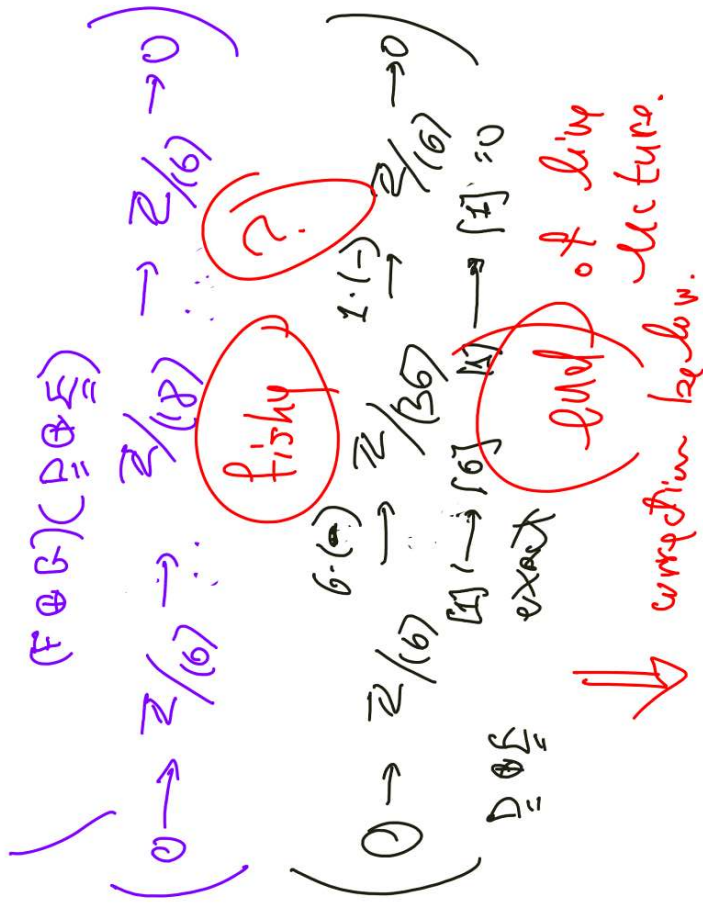 (F⊕G)(D⊕E)
0 → Z/(6) → Z/(18) → Z/(6) → 0
fishy ?
6·(-) 1·(-)
0 → Z/(6) → Z/(36) → Z/(6) → 0
[1] ↦ [6] [1] → [1] =0
D⊕E exact
end of live lecture.
⇒ correction below.